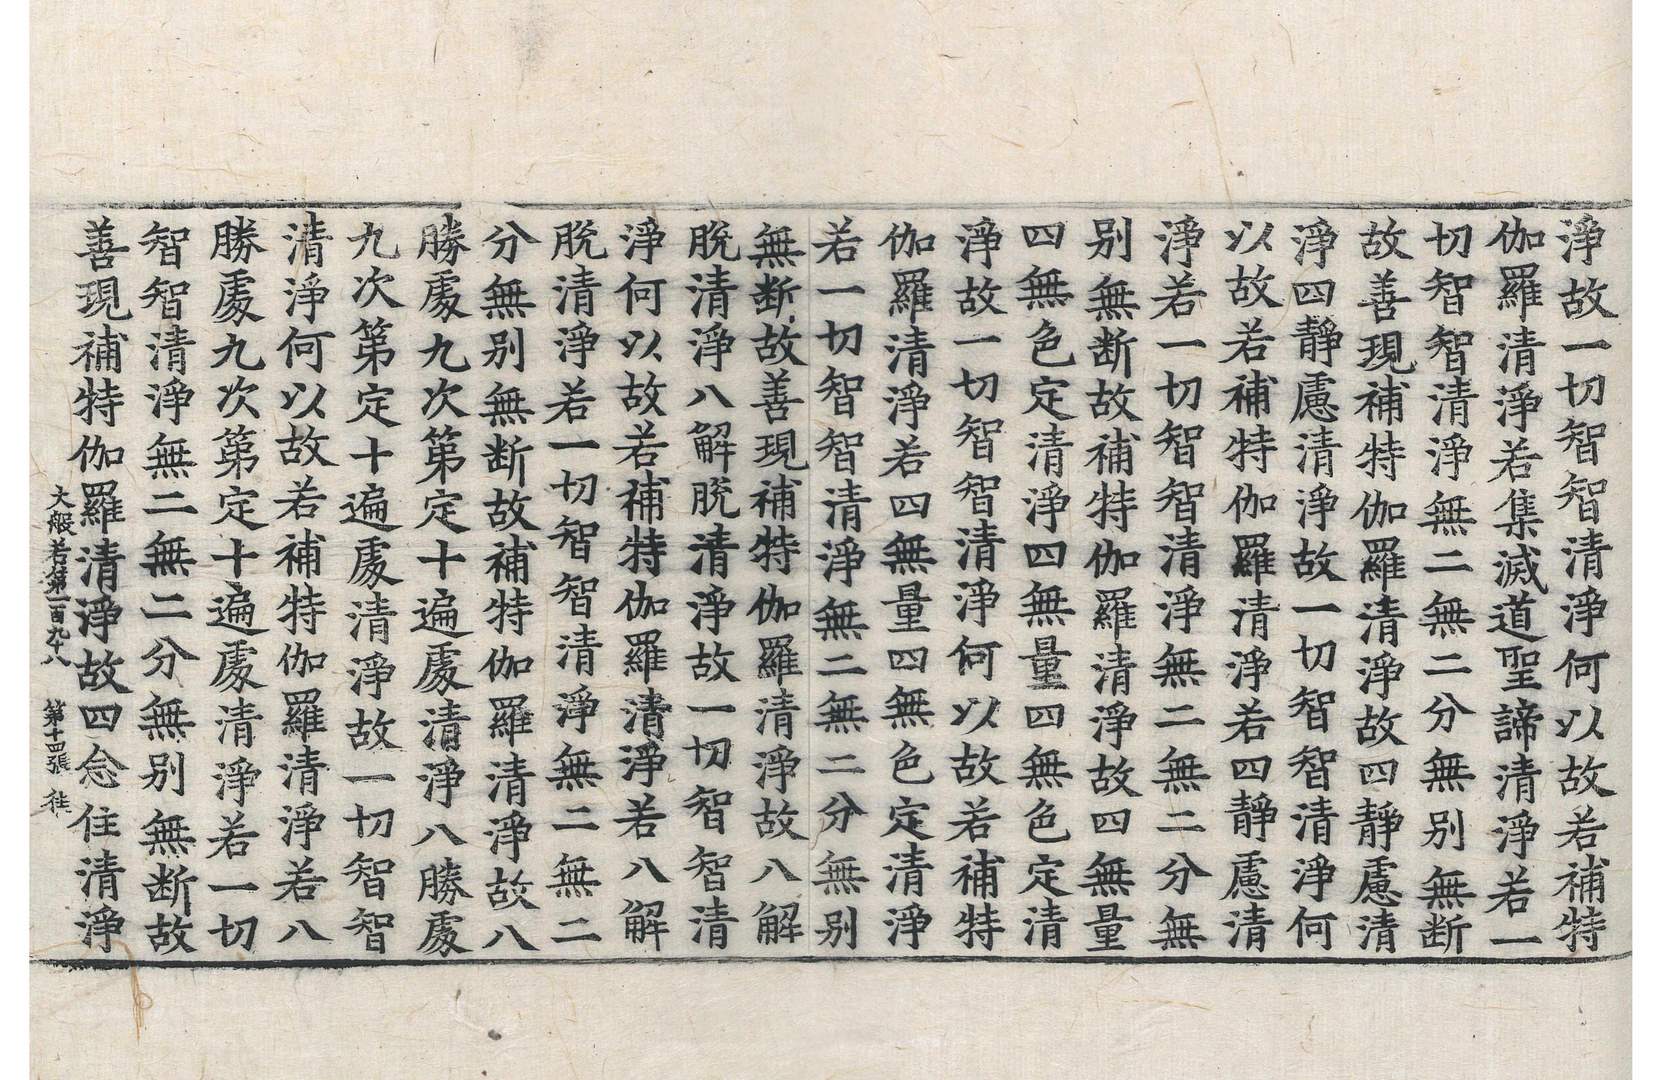 淨故一切智智清淨何以故若補特
伽羅清淨若集滅道聖諦清淨若一
切智智清淨無二無二分無別無断
故善現補特伽羅清淨故四靜慮清
淨四靜慮清淨故一切智智清淨何
以故若補特伽羅清淨若四靜慮清
淨若一切智智清淨無二無二分無
別無断故補特伽羅清淨故四無量
四無色定清淨四無量四無色定清
淨故一切智智清淨何以故若補特
伽羅清淨若四無量四無色定清淨
若一切智智清淨無二無二分無別
無断故善現補特伽羅清淨故八解
脫清淨八解脫清淨故一切智智清
淨何以故若補特伽羅清淨若八解
脫清淨若一切智智清淨無二無二
分無別無断故補特伽羅清淨故八
勝處九次第定十遍處清淨八勝處
九次第定十遍處清淨故一切智智
清淨何以故若補特伽羅清淨若八
勝處九次第定十遍處清淨若一切
智智清淨無二無二分無別無断故
善現補特伽羅清淨故四念住清淨
大般若第一百九十八 第十四張 往